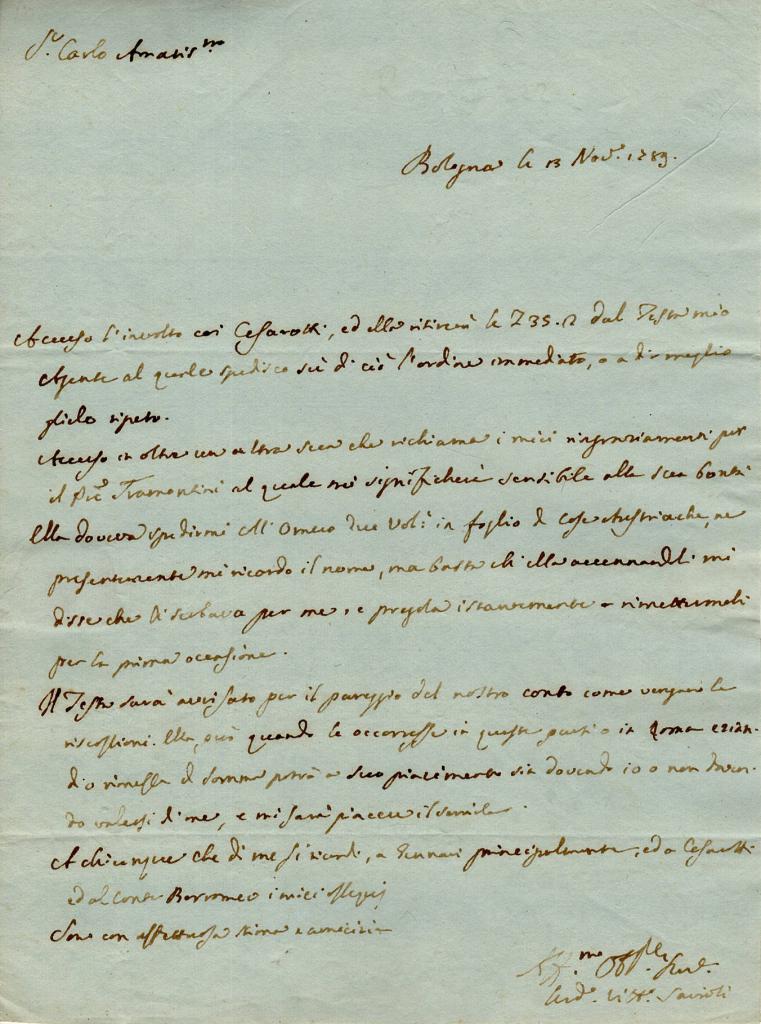 Sr. Carlo Amatis.mo
Bologna li 13 Nov.e 1789.
Accuso l'involto coi Cesarotti, ed ella ritirerà le L 35.2 dal Testa mio
Agente al quale spedisco sù di ciò l'ordine immediato, o a dir meglio
glielo ripeto.
Accuso in oltre un altra sua che richiama i miei ringraziamenti per
il Tramontini al quale mi significherà sensibile alla sua bontà
Ella doveva spedirmi due Vol.i in foglio di cose Austriache, ne
presentemente mi ricordo il nome, ma basta ch'ella accennandoli mi
disse che li serbava per me, e pregola istantemente a rimettermeli
per la prima occasione.
Il Testa sarà avvisato per il pareggio del nostro conto come vengan le
riscossioni. Ella, poi quando le occorresse in queste parti o in Roma ezian-
dio rimessa di somma potrà a suo piacimento sia dovendo io o non doven-
do valersi di me, e mi sarà piacere il servirla.
A chiunque che di me si ricordi, a Gennari principalmente, ed a Cesarotti
ed al Conte Borromeo i miei ossequj
Sono con affettuosa stima e amicizia
Aff.mo Obb.
Lud.o Vitt.o Savioli